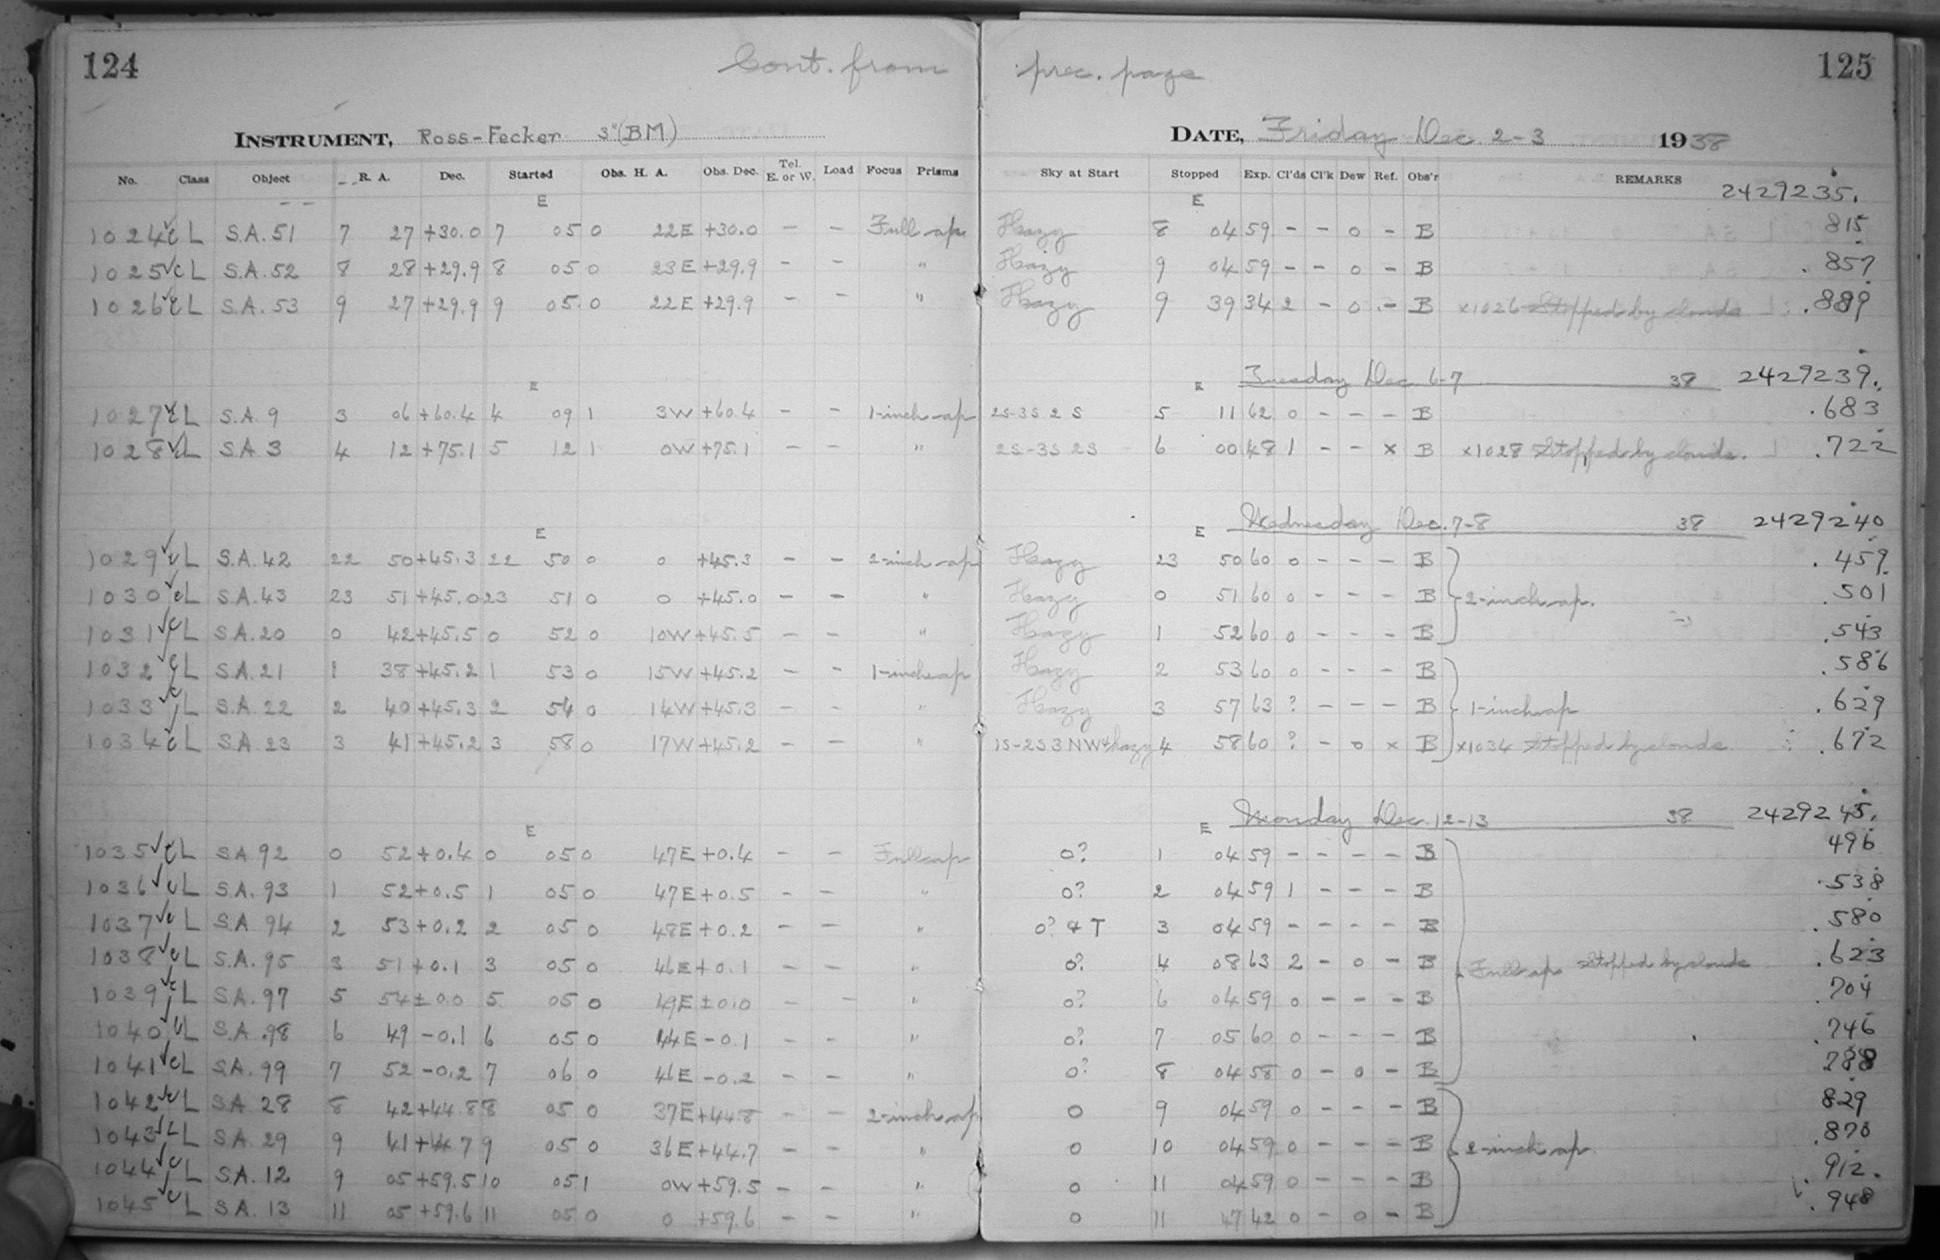 124
Cont. from prec. page
125
INSTRUMENT, Ross-Fecker 3"(BM)
DATE, Friday Dec. 2-3 1938
No. Class Object R. A. Dec. Started Obs. H. A. Obs. Dec. Tel. E. or W. Load Focus Prisms Sky at Start Stopped Exp. Cl'ds Cl'k Dew Ref. Obs'r REMARKS 2429235.
E E
1024 ✓c L S.A. 51 7 27 +30.0 7 05 0 22E +30.0 – – Full ap. Hazy 8 04 59 – – 0 – B 815
1025 ✓c L S.A. 52 8 28 +29.9 8 05 0 23E +29.9 – – " Hazy 9 04 59 – – 0 – B .857
1026 ✓c L S.A. 53 9 27 +29.9 9 05 0 22E +29.9 – – " Hazy 9 39 34 2 – 0 – B x1026 Stopped by clouds .889
E E Tuesday Dec. 6-7 38 2429239.
1027 ✓c L S.A. 9 3 06 +60.4 4 09 1 3W +60.4 – – 1-inch ap 2S-3S 2 S 5 11 62 0 – – – B .683
1028 ✓c L S.A. 3 4 12 +75.1 5 12 1 0W +75.1 – – " 2S-3S 2S 6 00 48 1 – – x B x1028 Stopped by clouds. .722
E E Wednesday Dec. 7-8 38 2429240
1029 ✓c L S.A. 42 22 50 +45.3 22 50 0 0 +45.3 – – 2-inch ap Hazy 23 50 60 0 – – – B .459
1030 ✓c L S.A. 43 23 51 +45.0 23 51 0 0 +45.0 – – " Hazy 0 51 60 0 – – – B 2-inch ap. .501
1031 ✓c L S.A. 20 0 42 +45.5 0 52 0 10W +45.5 – – " Hazy 1 52 60 0 – – – B .543
1032 ✓c L S.A. 21 1 38 +45.2 1 53 0 15W +45.2 – – 1-inch ap Hazy 2 53 60 0 – – – B .586
1033 ✓c L S.A. 22 2 40 +45.3 2 54 0 14W +45.3 – – " Hazy 3 57 63 ? – – – B 1-inch ap .629
1034 ✓c L S.A. 23 3 41 +45.2 3 58 0 17W +45.2 – – " 1S-2S 3 NW & hazy 4 58 60 ? – 0 x B x1034 Stopped by clouds .672
E E Monday Dec. 12-13 38 2429245.
1035 ✓c L S.A. 92 0 52 +0.4 0 05 0 47E +0.4 – – Full ap 0? 1 04 59 – – – – B 496
1036 ✓c L S.A. 93 1 52 +0.5 1 05 0 47E +0.5 – – " 0? 2 04 59 1 – – – B .538
1037 ✓c L S.A. 94 2 53 +0.2 2 05 0 48E +0.2 – – " 0? & T 3 04 59 – – – – B .580
1038 ✓c L S.A. 95 3 51 +0.1 3 05 0 46E +0.1 – – " 0? 4 08 63 2 – 0 – B Full ap Stopped by clouds .623
1039 ✓c L S.A. 97 5 54 ±0.0 5 05 0 49E ±0.0 – – " 0? 6 04 59 0 – – – B .704
1040 ✓c L S.A. 98 6 49 -0.1 6 05 0 44E -0.1 – – " 0? 7 05 60 0 – – – B .746
1041 ✓c L S.A. 99 7 52 -0.2 7 06 0 46E -0.2 – – " 0? 8 04 58 0 – 0 – B 788
1042 ✓c L S.A. 28 8 42 +44.8 8 05 0 37E +44.8 – – 2-inch ap 0 9 04 59 0 – – – B 829
1043 ✓c L S.A. 29 9 41 +44.7 9 05 0 36E +44.7 – – " 0 10 04 59 0 – – – B 2-inch ap. .870
1044 ✓c L S.A. 12 9 05 +59.5 10 05 1 0W +59.5 – – " 0 11 04 59 0 – – – B .912
1045 ✓c L S.A. 13 11 05 +59.6 11 05 0 0 +59.6 – – " 0 11 47 42 0 – 0 – B .948